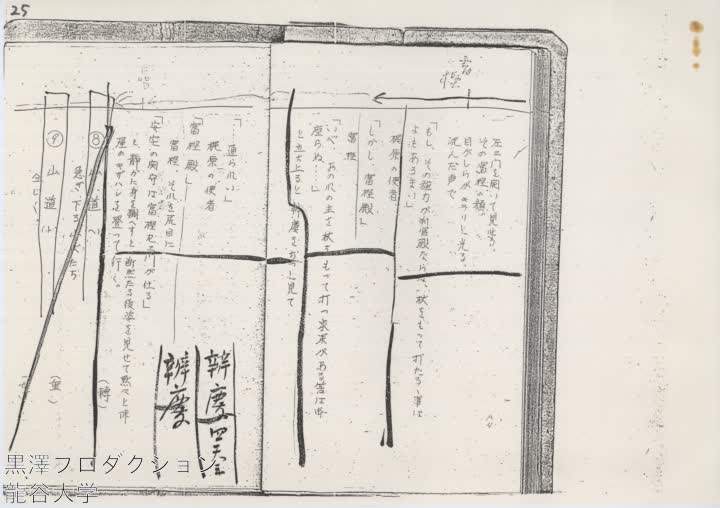 25
富樫
左の門を開いて見せる。
その富樫の顔。
目がしらがキラリと光る。
沈んだ声で
「もし、その強力が判官殿ならば、杖をもって打たるゝ筈は
よもあるまい」
梶原の使者
「しかし、富樫殿」
富樫
「いや、あの爪の主を杖をもって打つ家来がある筈は
座らぬ……」
と立上ると、辨慶をぢっと見て
「……通られい」
梶原の使者
「富樫殿」
富樫、それを尻目に
「安宅の関守は富樫
が仕る」
と、静かに身を翻へすと、断然たる後姿を見せて黙々と
登って行く。
(轉)
辨慶 四天王
辨慶
⑧ 山道(ヘ)
急ぎ下る山伏たち
⑨ 山道(ト)
同じく
黒澤プロダクション
龍谷大学